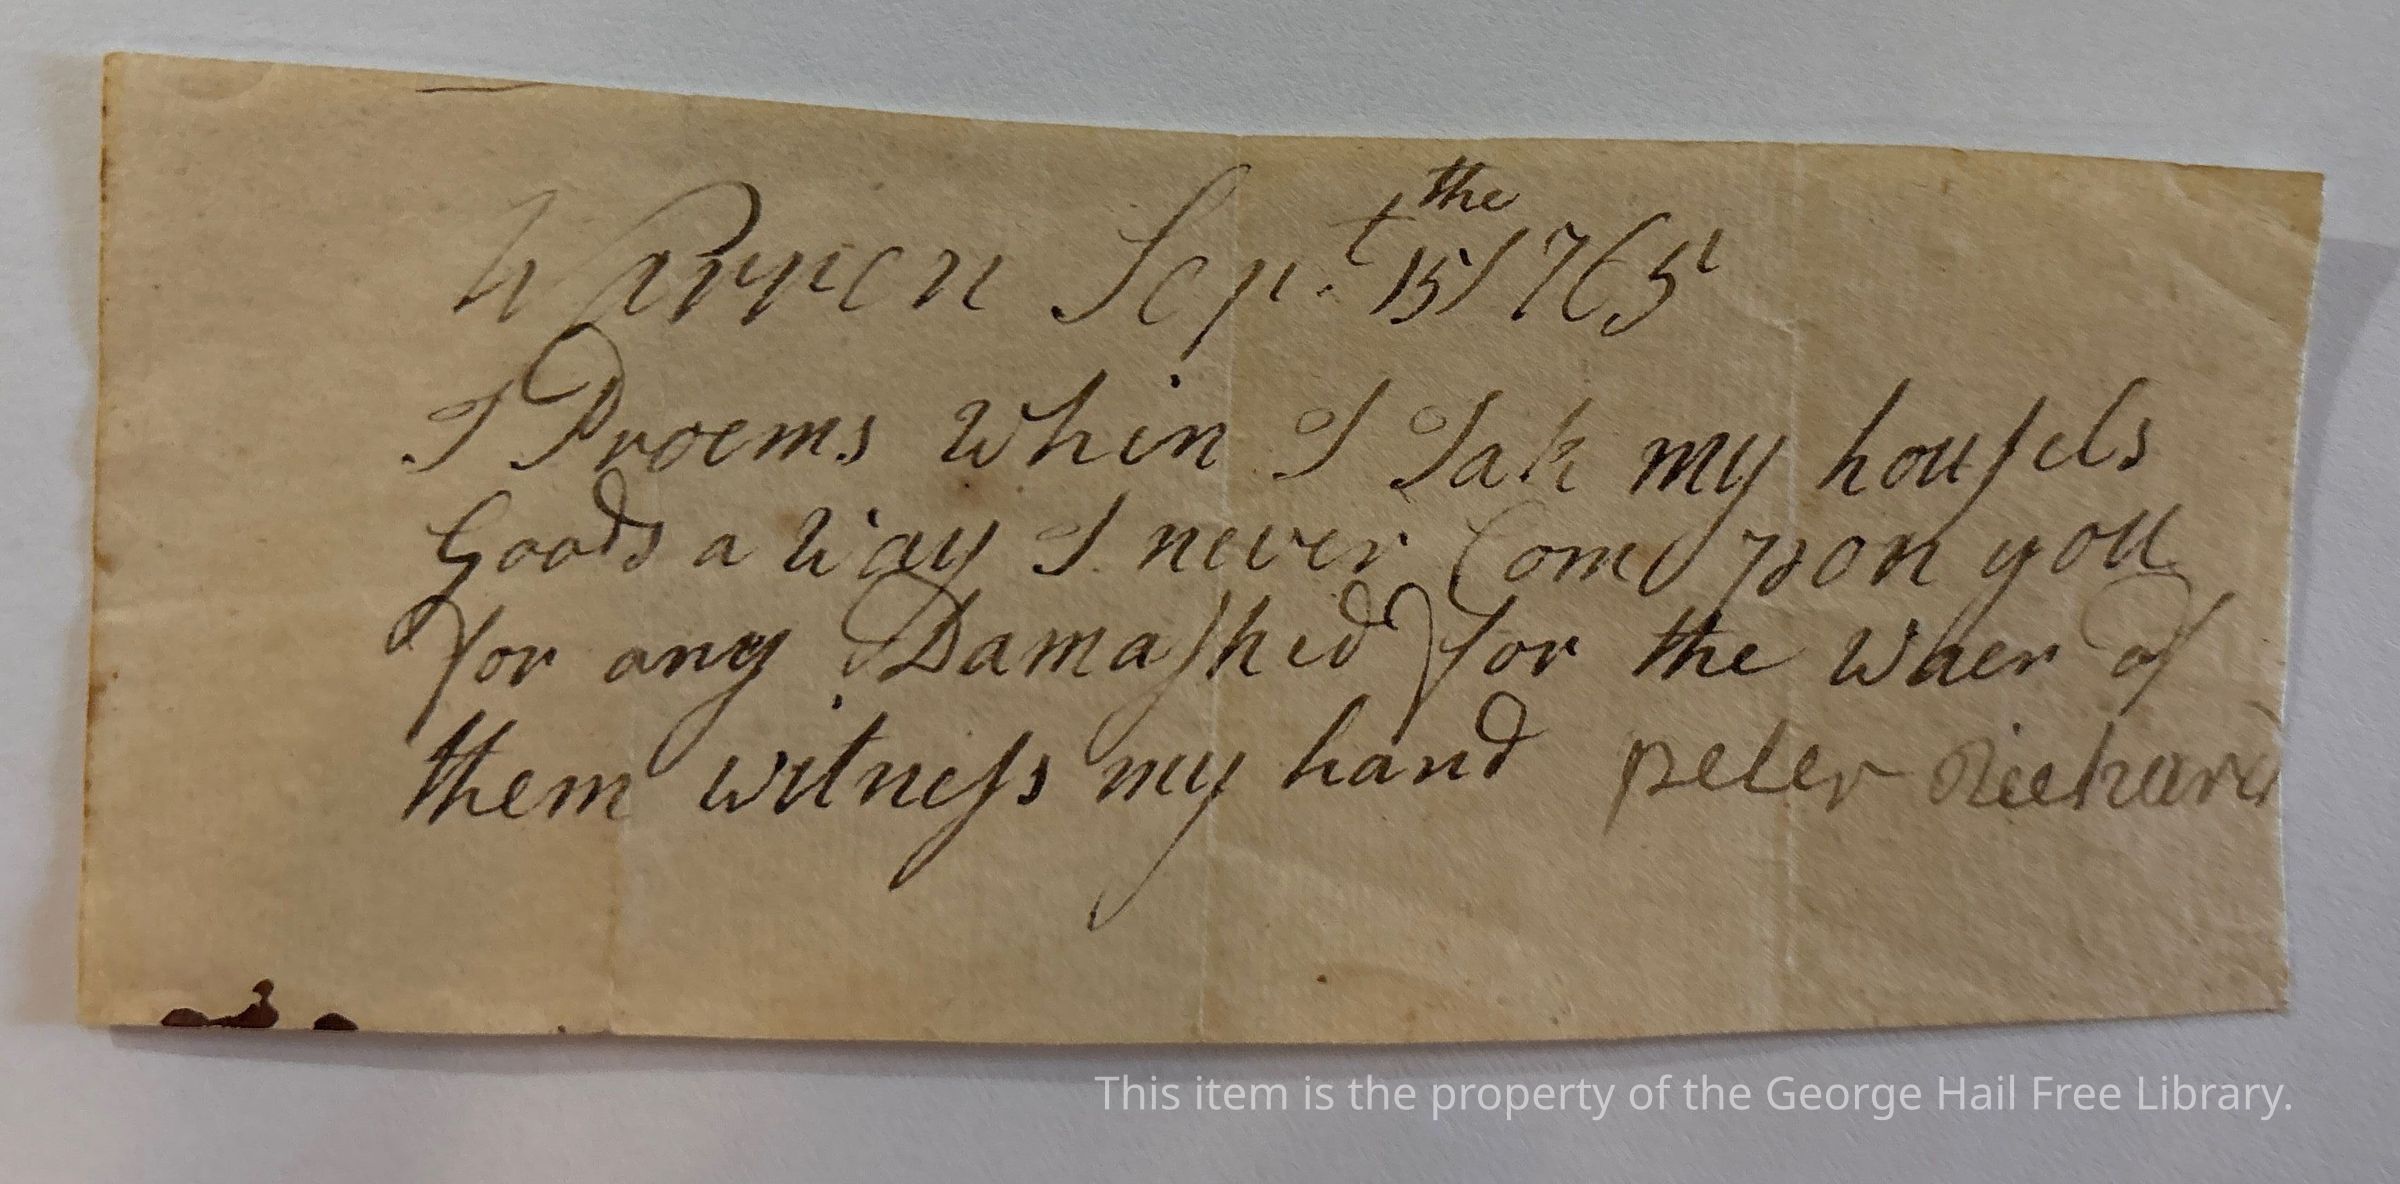 Warren Sep.t the 15 1765
I Proems Whin I Tak my houſels
Goods a Way I never Com pon you
for any Damaſhed for the Waer of
them witneſs my hand peter Richard
This item is the property of the George Hail Free Library.